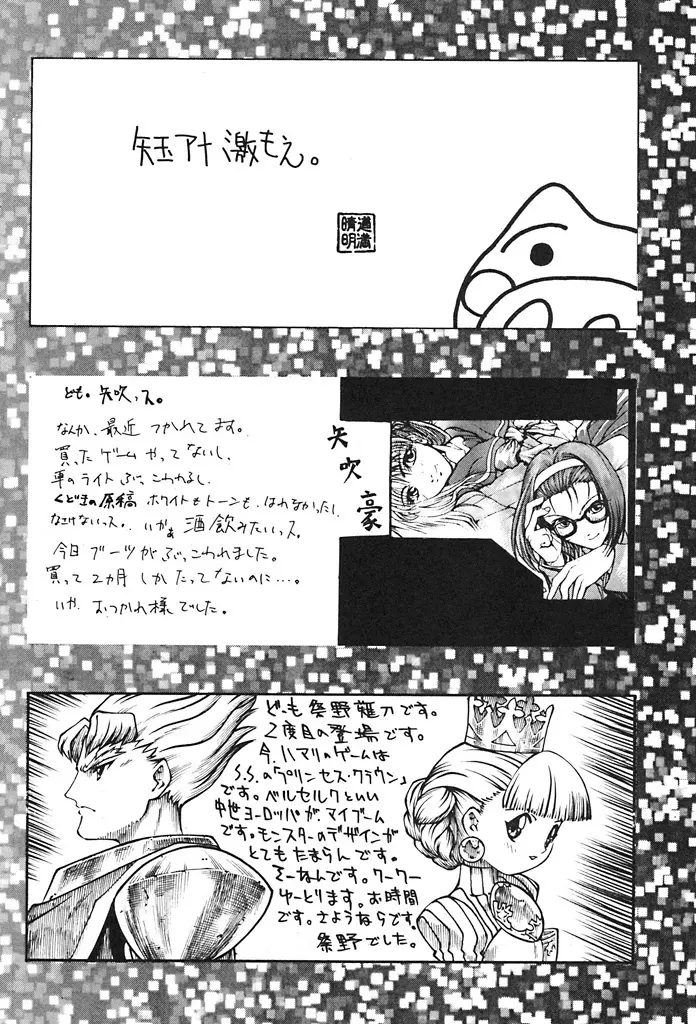 短玉アナ 激もえ。
道満
晴明
ども。矢吹っス。
なんか、最近 つかれてます。
買ったゲーム やってないし、
車のライト ぶっこわれるし、
くどまの原稿 ホワイトもトーンも、はれなかったし、
なさけないっス。いやぁ 酒飲みたいっス。
今日 ブーツが ぶっこわれました。
買って 2ヵ月 しか たってないのに…。
いや、おつかれ様でした。
矢吹豪
ども 祭野薙刀です。
2度目の登場です。
今、ハマリのゲームは
S.S.の「プリンセス・クラウン」
です。ベルセルクといい
中世ヨーロッパが、マイブーム
です。モンスターのデザインが
とても たまらんです。
そーなんです。クークー
ゆーとります。お時間
です。さようならです。
祭野でした。